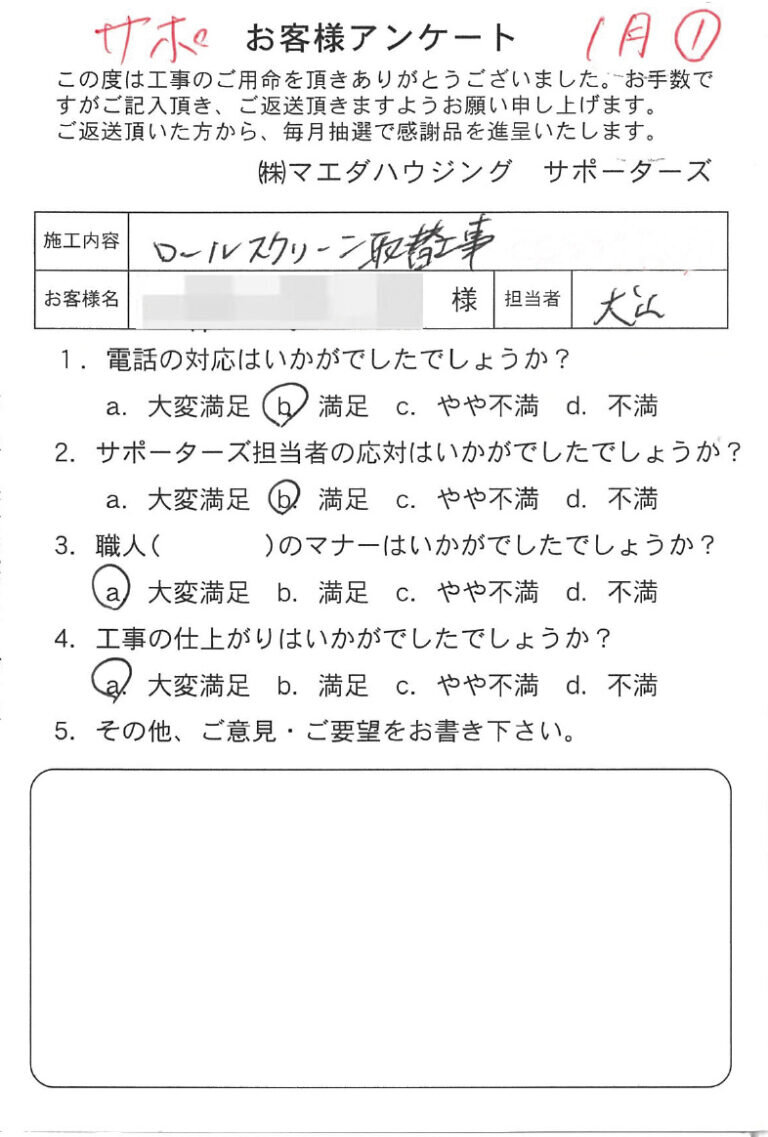 サポ お客様アンケート 1月①
この度は工事のご用命を頂きありがとうございました。お手数で
すがご記入頂き、ご返送頂きますようお願い申し上げます。
ご返送頂いた方から、毎月抽選で感謝品を進呈いたします。
㈱マエダハウジング サポーターズ
施工内容 ロールスクリーン取替工事
お客様名 様 担当者
1. 電話の対応はいかがでしたでしょうか？
a. 大変満足 b. 満足 c. やや不満 d. 不満
2. サポーターズ担当者の応対はいかがでしたでしょうか？
a. 大変満足 b. 満足 c. やや不満 d. 不満
3. 職人( )のマナーはいかがでしたでしょうか？
a. 大変満足 b. 満足 c. やや不満 d. 不満
4. 工事の仕上がりはいかがでしたでしょうか？
a. 大変満足 b. 満足 c. やや不満 d. 不満
5. その他、ご意見・ご要望をお書き下さい。